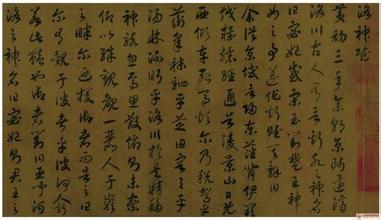 洛神賦
黃初三年余朝京師還濟
洛川古人有言斯水之神名
曰宓妃感宋玉對楚王神
女之事遂作斯賦其辭曰
余從京域言歸東藩背伊闕
越轘轅經通谷陵景山日既
西傾車殆馬煩爾乃稅駕乎
蘅皋秣駟乎芝田容與乎
陽林流眄乎洛川於是精移
神駭忽焉思散俯則未察
仰以殊觀覩一麗人于巖
之畔迺援御者而告之曰
爾有覿于彼者乎彼何人斯
若此之豔也御者對曰臣聞河
洛之神名曰宓妃則君王之